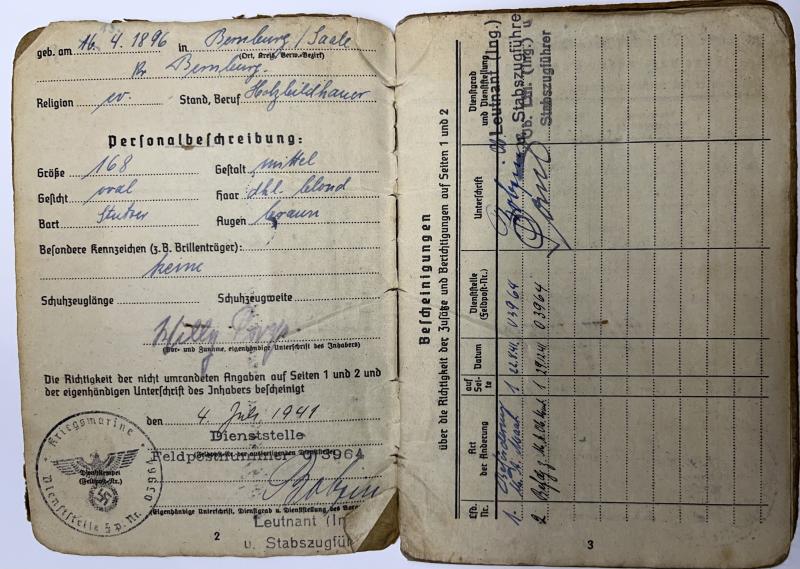 geb. am 16. 4. 1896 in Bernburg/Saale
(Ort, Kreis, Verw.-Bezirk)
Kr. Bernburg.
Religion ev. Stand, Beruf Holzbildhauer
Personalbeschreibung:
Größe 168 Gestalt mittel
Gesicht oval Haar dkl. blond
Bart Stutzer Augen braun
Besondere Kennzeichen (z.B. Brillenträger):
keine
Schuhzeuglänge Schuhzeugweite
Willy
(Vor- und Zuname, eigenhändige Unterschrift des Inhabers)
Die Richtigkeit der nicht umrandeten Angaben auf Seiten 1 und 2 und
der eigenhändigen Unterschrift des Inhabers bescheinigt
den 4. Juli 1941
Dienststelle
Feldpostnummer 03964
(Eigenhändige Unterschrift, Dienstgrad u. Dienststellung des
Leutnant (In
u. Stabszugfüh
Kriegsmarine
Dienststempel
(Feldpost-Nr.)
Dienststelle F.p. Nr. 03964
2
Bescheinigungen
über die Richtigkeit der Zusätze und Berichtigungen auf Seiten 1 und 2
Lfd. Nr. Art der Änderung auf Seite Datum Dienststelle (Feldpost-Nr.) Unterschrift Dienstgrad und Dienststellung
1. Beförderung 1 03964 Leutnant (Ing.) u. Stabszugführer
2 1 29.12.41 03964 Ob. Ltn. (Ing.) u. Stabszugführer
3